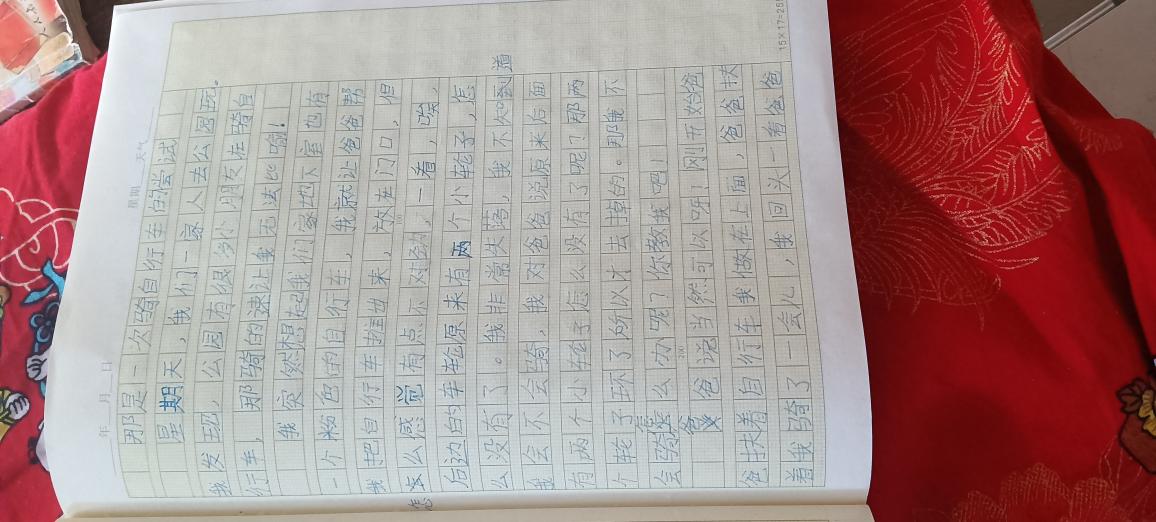 年 月 日
星期 天气
那是一次骑自行车的尝试
星期天，我们一家人去公园玩。
我发现，公园有很多小朋友在骑自
行车，那骑的速让我无法比喻！
我突然想起我们家地下室也有
一个粉色的自行车，我就让爸爸帮
我把自行车拉出来，放在门口，但
怎么感觉有点不对劲，一看，唉，
后边的车轮原来有两个小轮子，怎
么没有了。我非常失落，我不知道
我会不会骑，我对爸爸说原来后面
有两个小轮子怎么没有了呢？那两
个轮子环了所以才去掉的。那我不
会骑怎么办呢？你教我吧！
爸爸说当然可以呀！刚开始爸
爸扶着自行车我做在上面，爸爸扶
着我骑了一会儿，我回头一看爸爸
100
200
15×17=255